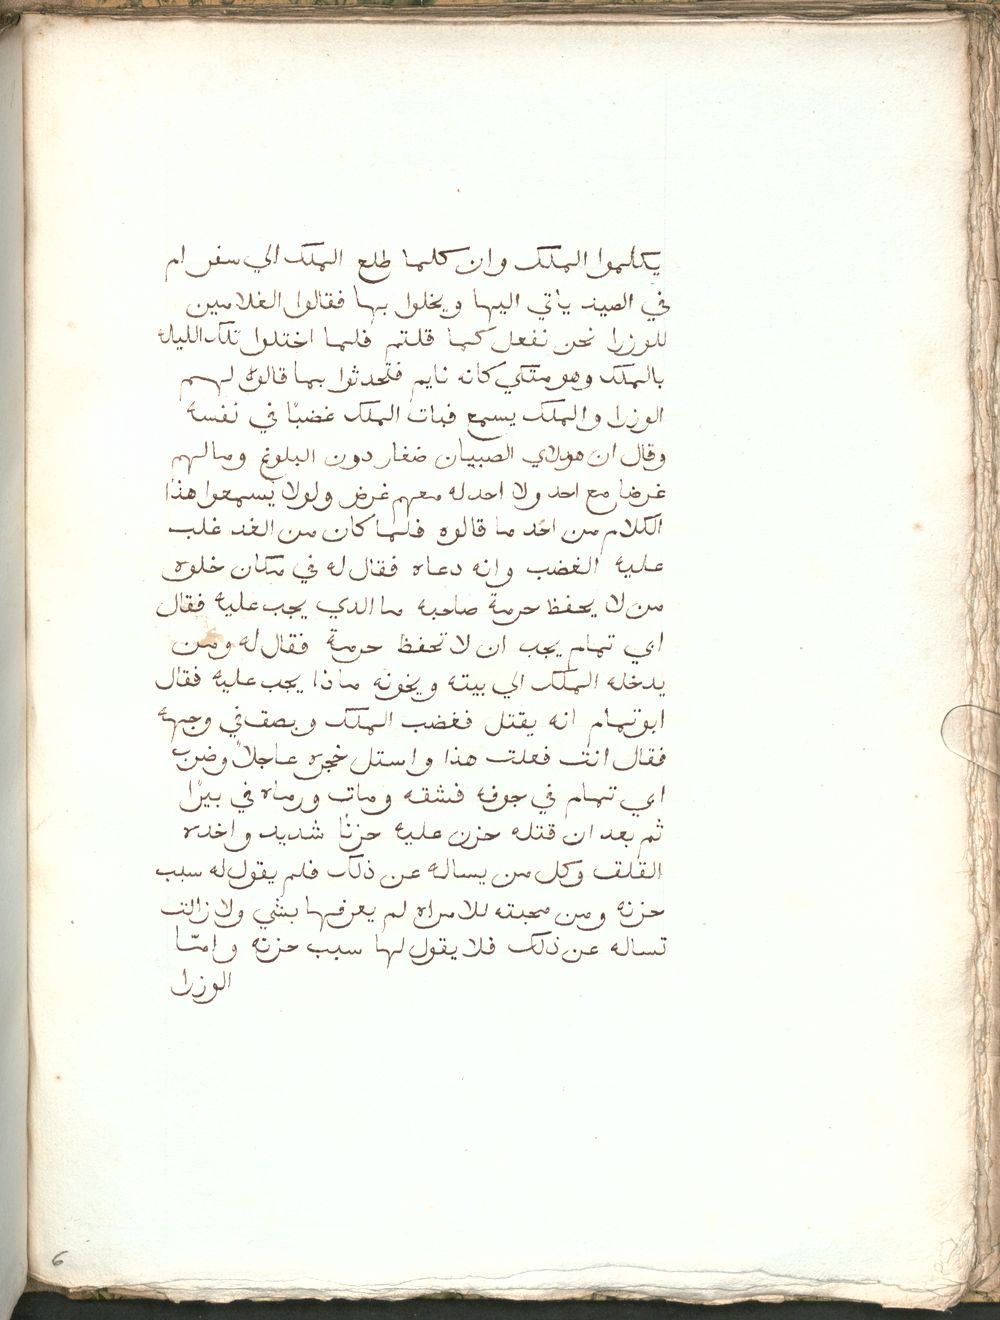 يكلموا الملك وان كلما طلع الملك الي سفر ام
في الصيد ياتي اليها ويخلوا بها فقالوا الغلامين
للوزرا نحن نفعل كما قلتم فلما اختلوا تلك الليله
بالملك وهو متكي كانه نايم فتحدثوا بما قالوه لهم
الوزرا والملك يسمع فبات الملك غضبًا في نفسه
وقال ان هولاي الصبيان ضغار دون البلوغ وما لهم
غرضا مع احد ولا احد له معهم غرض ولولا يسمعوا هذا
الكلام من احد ما قالوه فلما كان من الغد غلب
عليه الغضب وانه دعاه فقال له في مكان خلوه
من لا يحفظ حرمة صاحبه ما الدي يجب عليه فقال
اي تمام يجب ان لا تحفظ حرمة فقال له ومن
يدخله الملك الي بيته ويخونه ماذا يجب عليه فقال
ابو تمام انه يقتل فغضب الملك وبصق في وجهه
فقال انت فعلت هذا واستل خجره عاجلاً وضرب
اي تمام في جوفه فشقه ومات ورماه في بيرًا
ثم بعد ان قتله حزن عليه حزنًا شديد واخده
القلق وكل من يساله عن ذلك فلم يقول له سبب
حزنه ومن محبته للامراه لم يعرفها بشي ولا زالت
تساله عن ذلك فلا يقول لها سبب حزنه وامّا
الوزرا
6